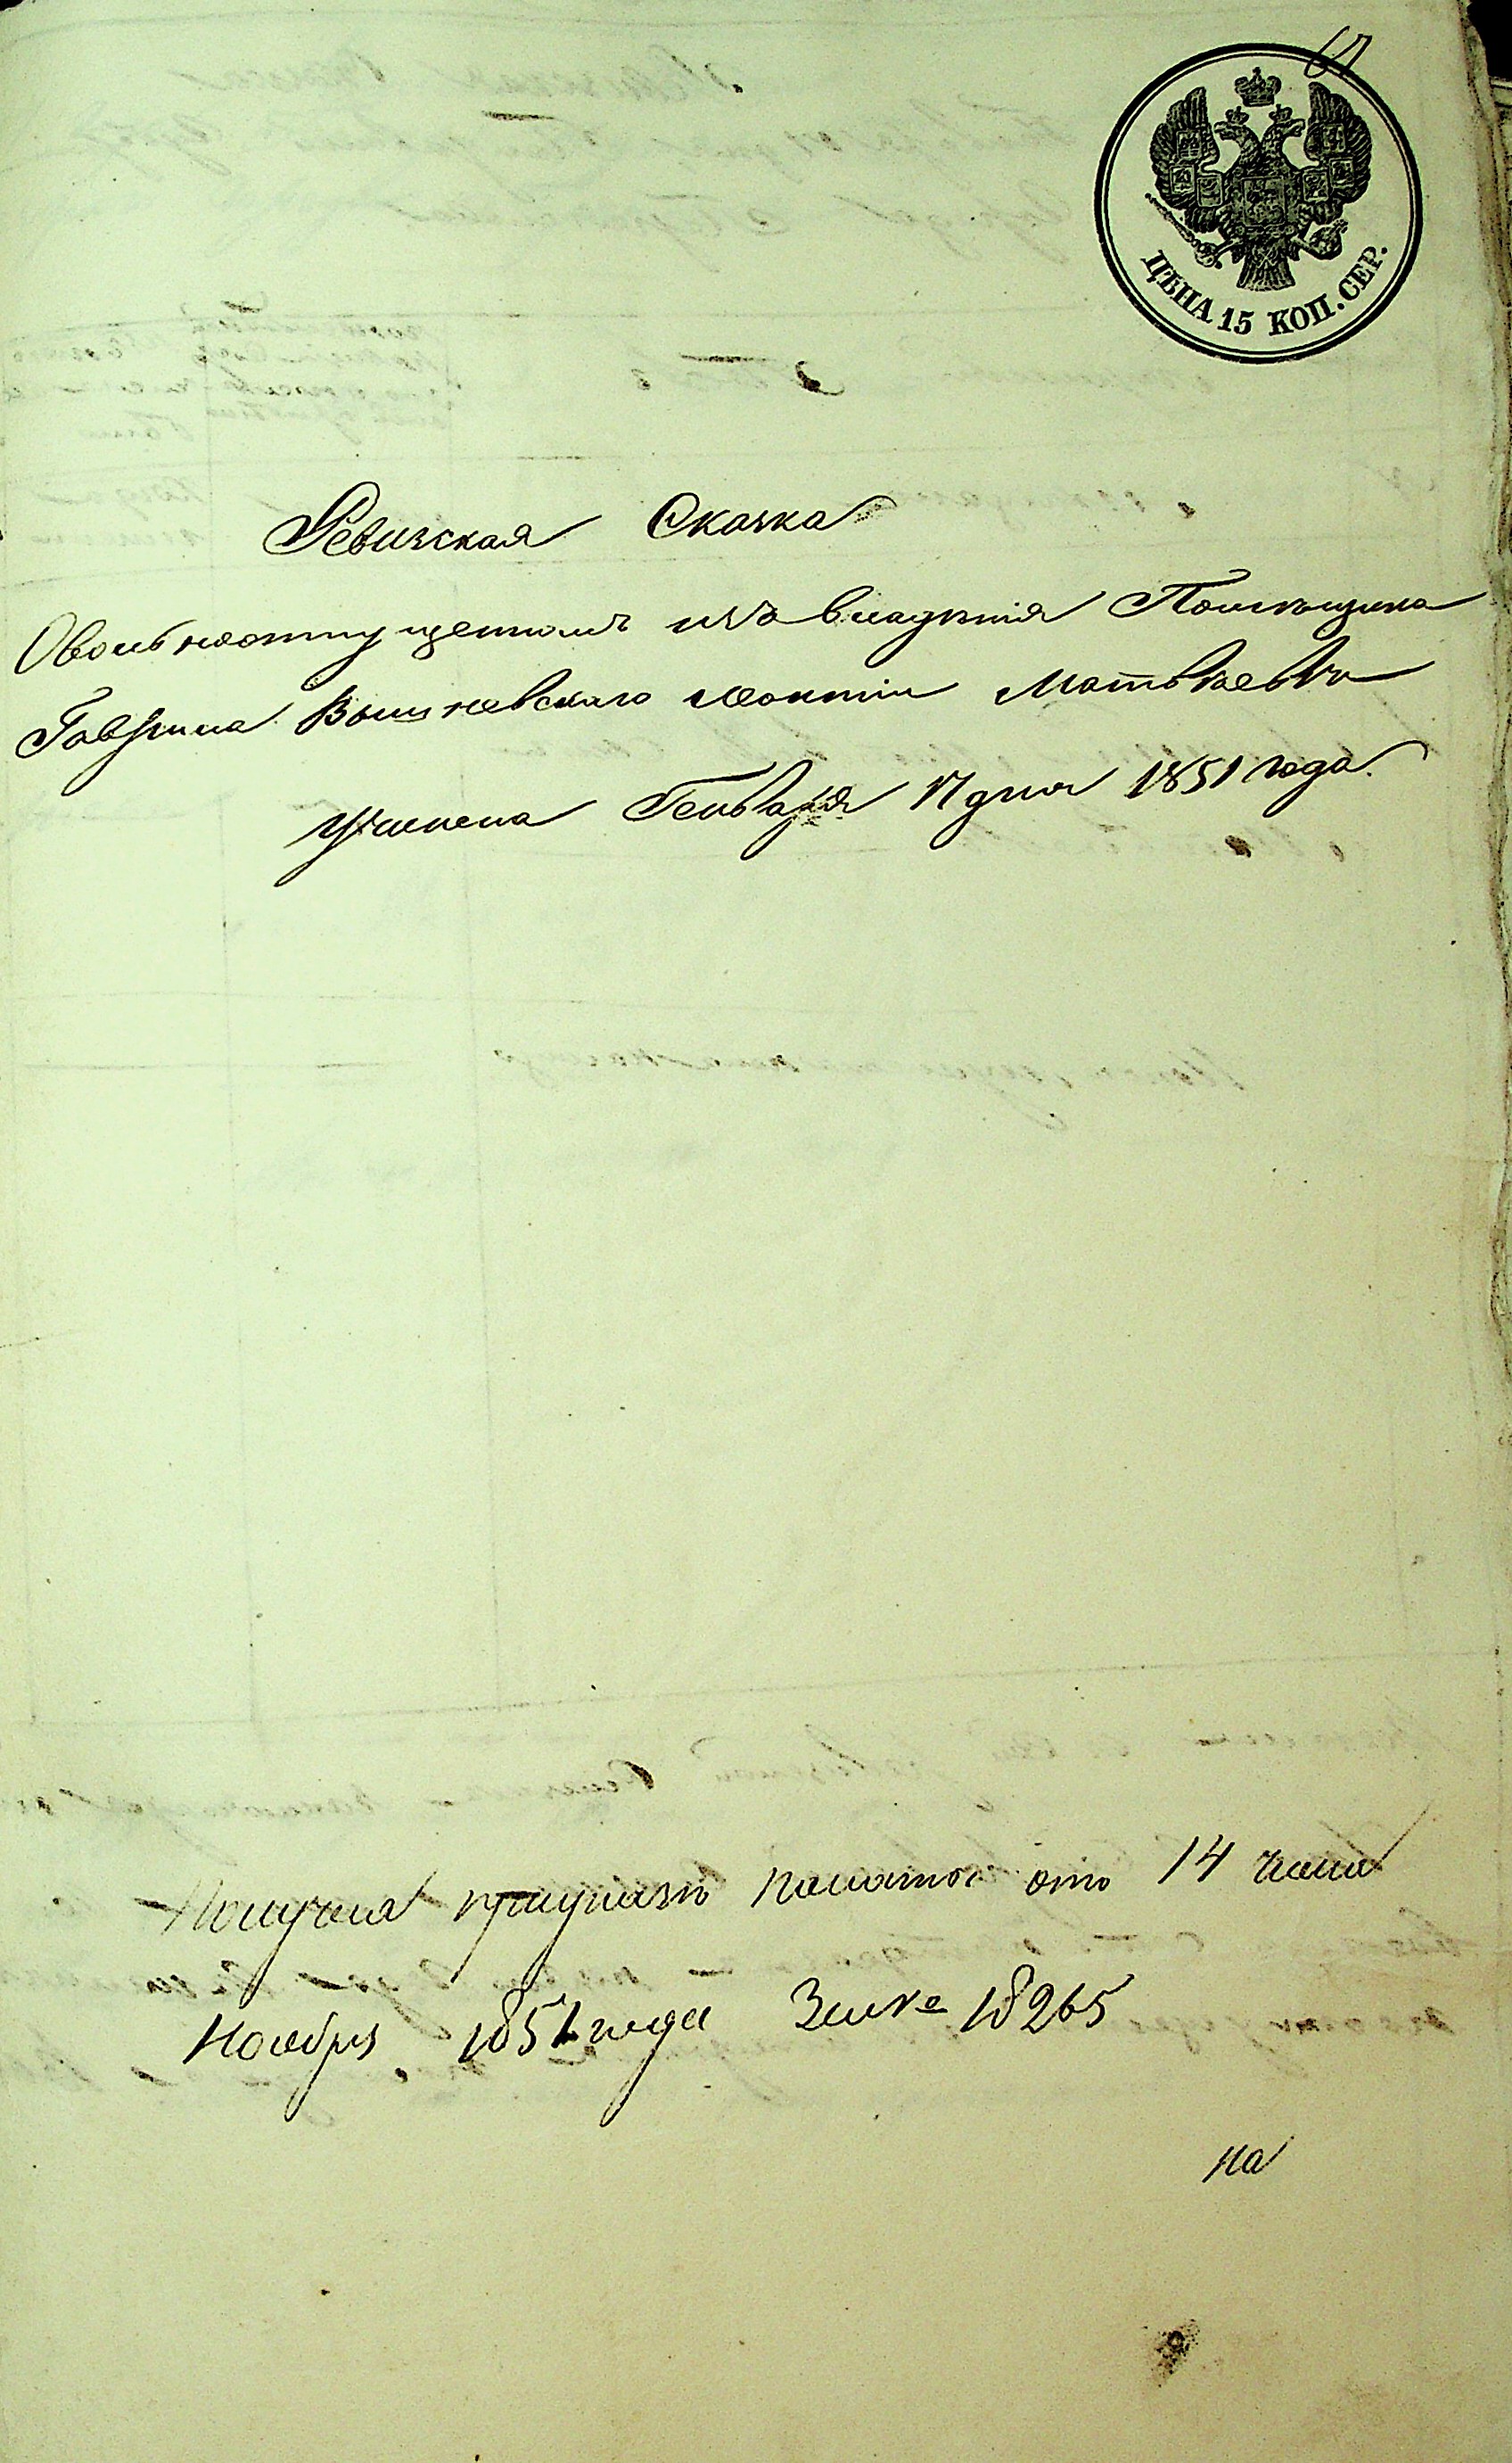 ЦѢНА 15 КОП. СЕР.
Ревизская Сказка
Овольноотпущенномъ изъ владѣнія Помѣщика
Гаврила Вышневскаго Леонтіи Матвѣевѣ
Учинена Генваря 17 дня 1851 года.
Получена при указѣ палаты отъ 14 числа
Ноября 1851 года За № 18265
на